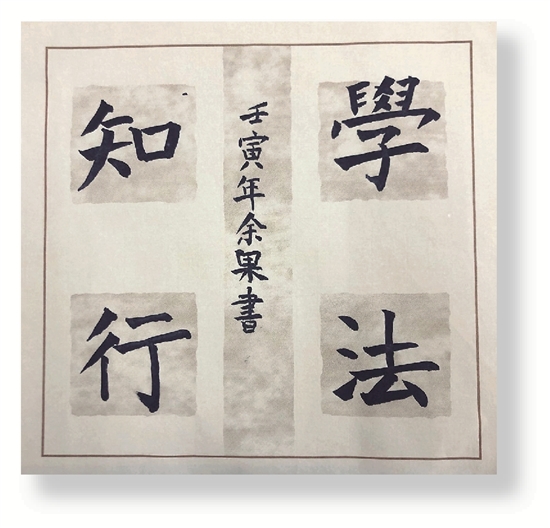 學法
壬寅年余果書
知行